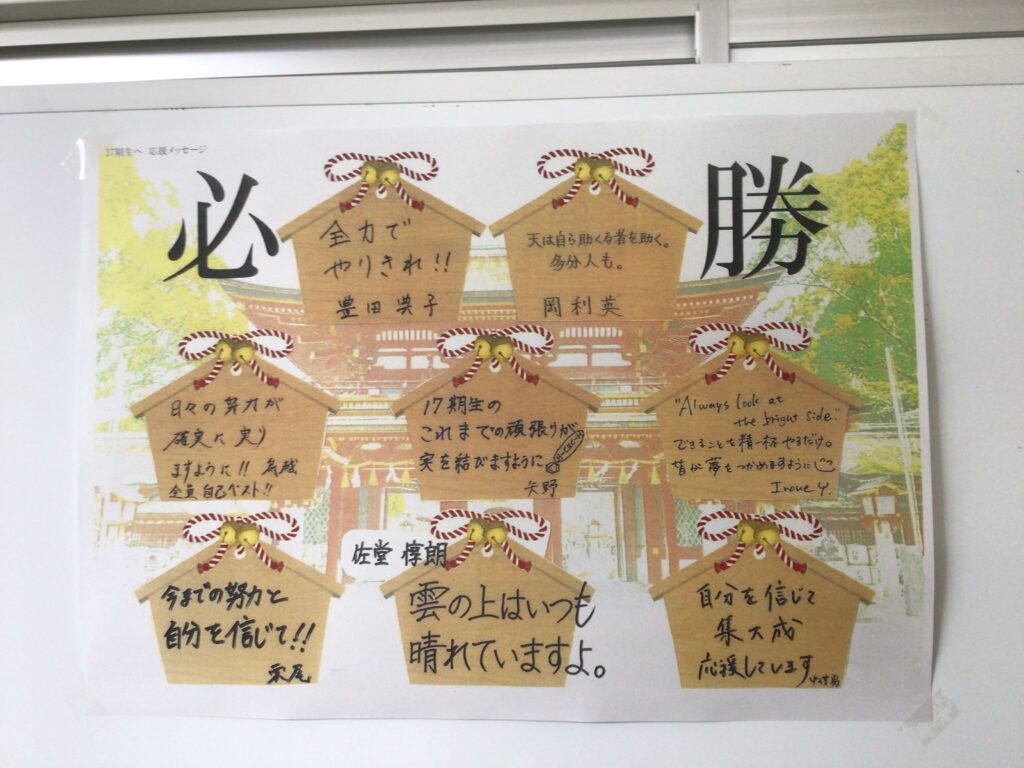 17期生へ 応援メッセージ
必勝
全力で
やりきれ!!
豊田典子
天は自ら助くる者を助く。
多分人も。
岡利英
日々の努力が
確実に実り
ますように!!
全員自己ベスト!!
17期生の
これまでの頑張りが
実を結びますように
矢野
"Always look at
the bright side."
できることを精一杯やるだけ。
皆が夢をつかめますように
Inoue Y.
今までの努力と
自分を信じて!!
佐堂 惇朗
雲の上はいつも
晴れていますよ。
自分を信じて
集大成
応援しています